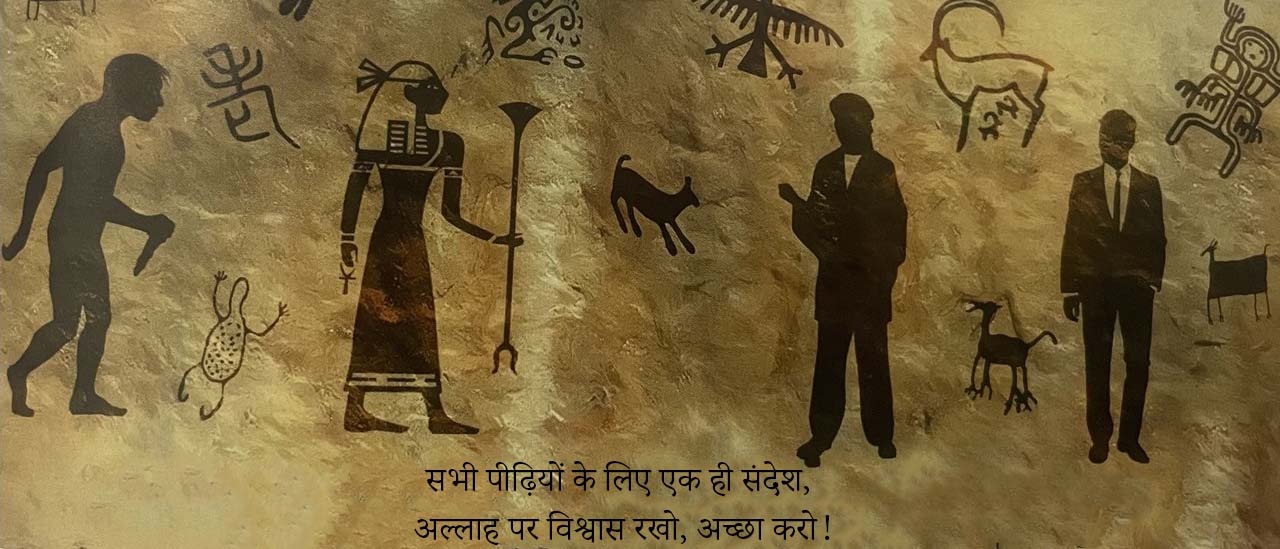 सभी पीढ़ियों के लिए एक ही संदेश,
अल्लाह पर विश्वास रखो, अच्छा करो!